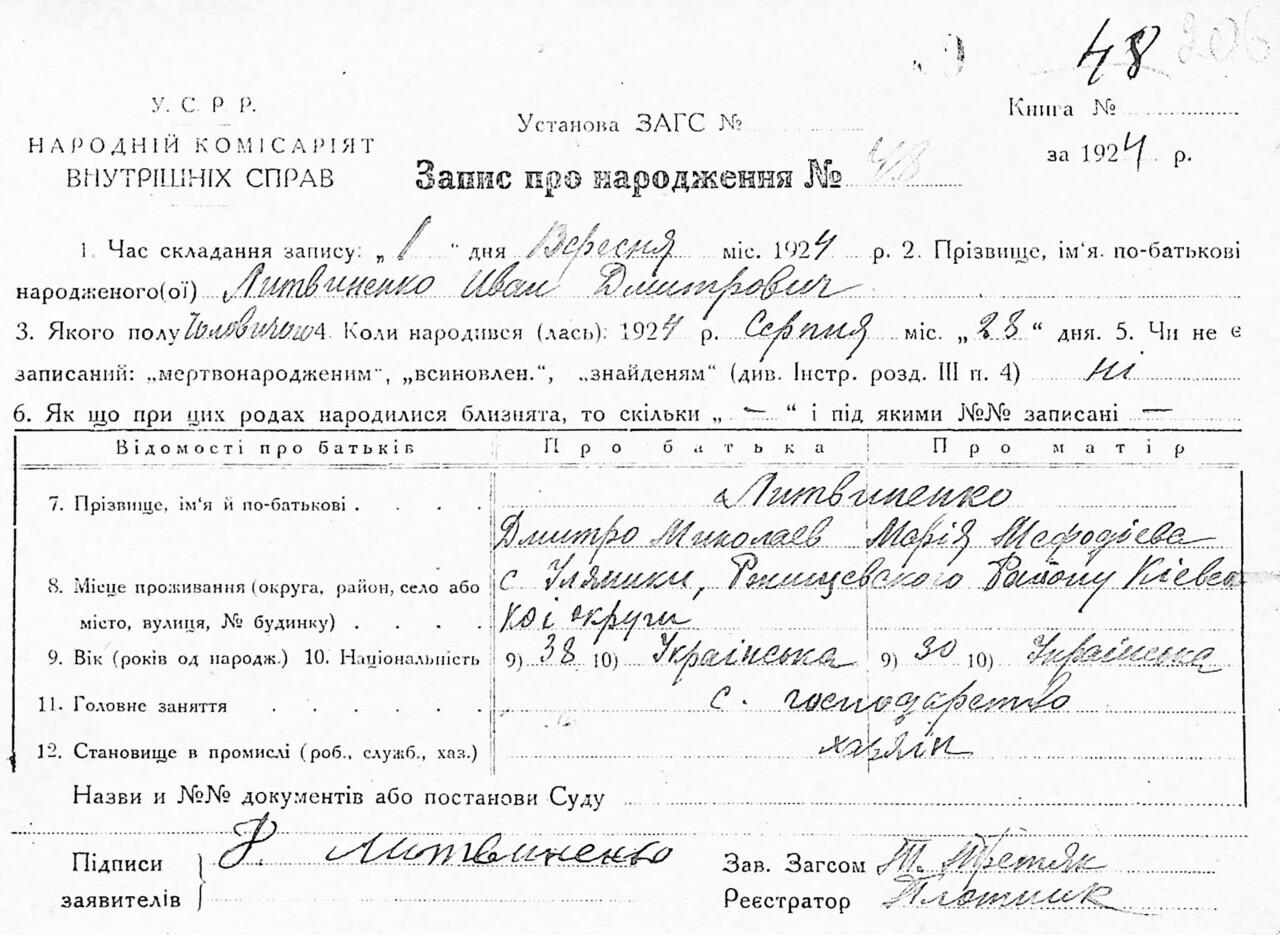 48 206
У. С. Р. Р.
НАРОДНІЙ КОМІСАРІЯТ
ВНУТРІШНІХ СПРАВ
Установа ЗАГС №
Книга №
за 1924 р.
Запис про народження № 48
1. Час складання запису: „ 1 “ дня Вересня міс. 1924 р. 2. Прізвище, ім'я. по-батькові
народженого(ої) Литвиненко Иван Дмитрович
3. Якого полу Чоловичого 4. Коли народився (лась): 1924 р. Серпня міс. „ 28 “ дня. 5. Чи не є
записаний: „мертвонародженим“, „всиновлен.“, „знайденям“ (див. Інстр. розд. III п. 4) ні
6. Як що при цих родах народилися близнята, то скільки „ — “ і під якими №№ записані —
Відомості про батьків Про батька Про матір
7. Прізвище, ім'я й по-батькові . . . . Литвиненко
Дмитро Миколаев Марія Мефодіева
8. Місце проживання (округа, район, село або с Улямики, Ржищевского Району Кіевсь
місто, вулиця, № будинку) . . . . коі округи
9. Вік (років од народж.) 10. Національність 9) 38 10) Українська 9) 30 10) Українська
11. Головне заняття . . . . . . с. господарство
12. Становище в промислі (роб., служб., хаз.) хазяін
Назви и №№ документів або постанови Суду
Підписи Литвиненко Зав. Загсом Т. Третяк
заявителів Реєстратор Плотник